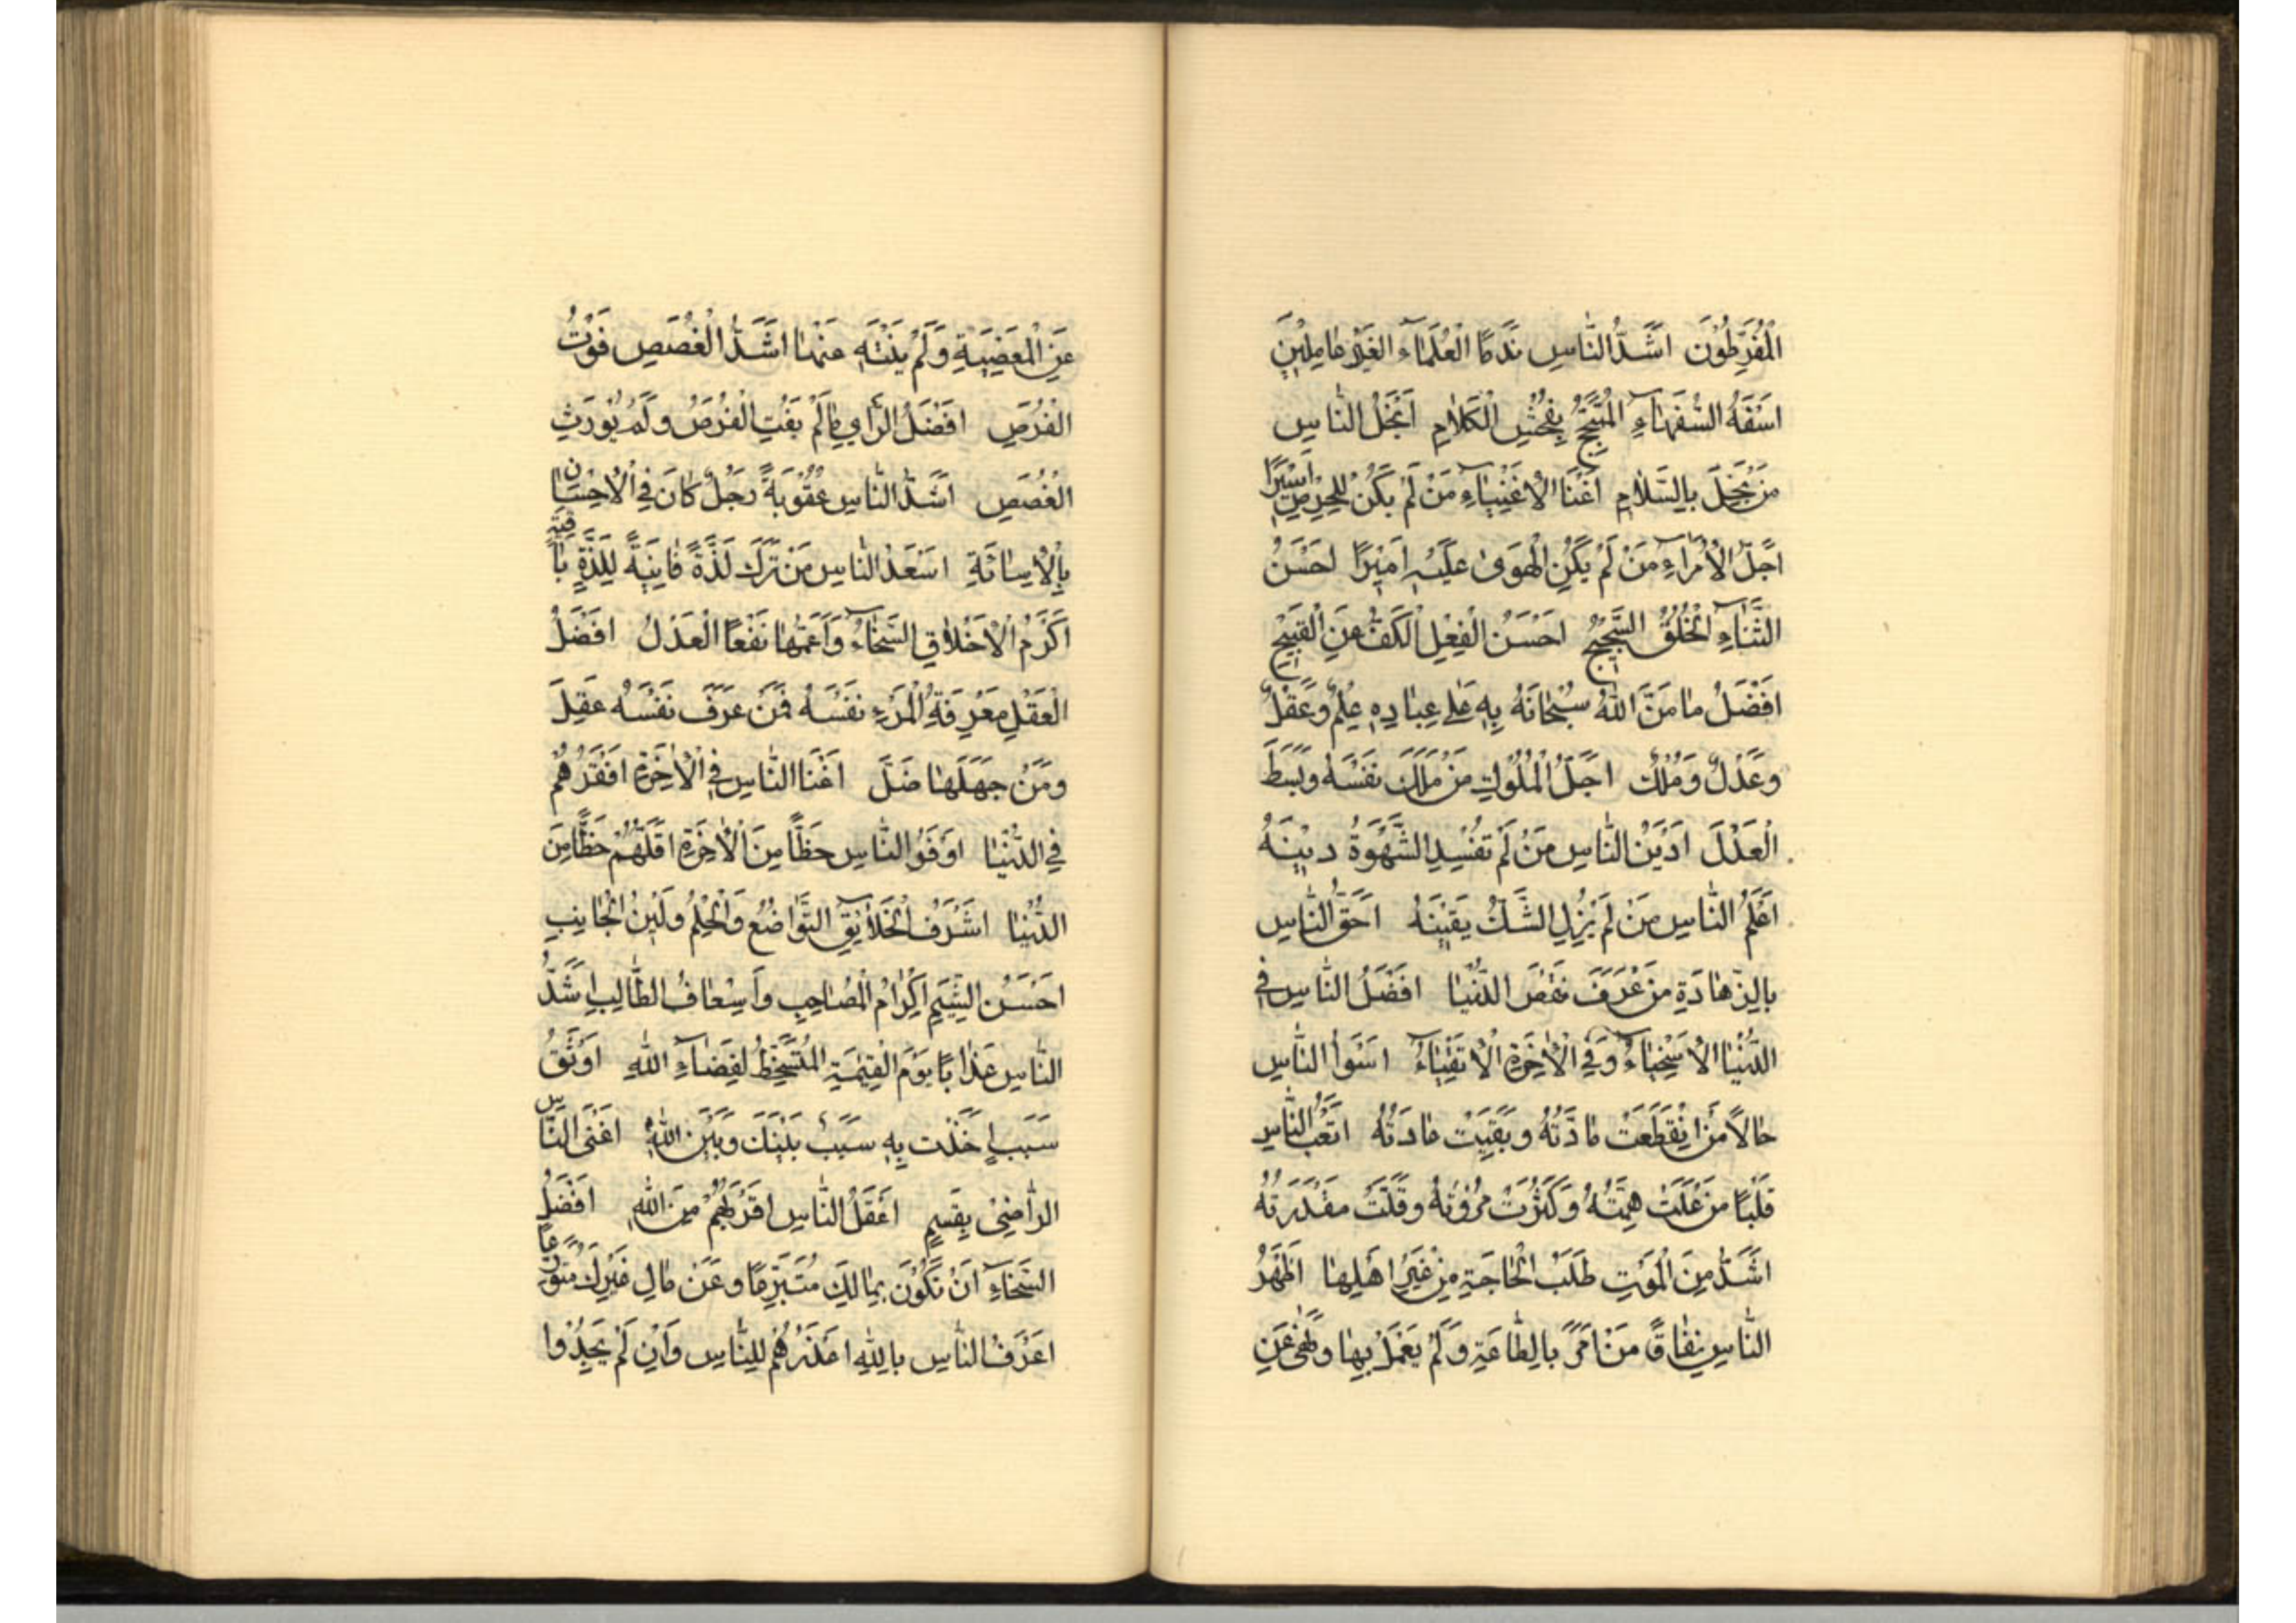 الْمُفَرِّطُونَ اَشَدُّ النَّاسِ نَدَمًا الْعُلَمَاءُ الْغَيْرُ عَامِلِينَ
اَسْفَهُ السُّفَهَاءِ الْمُتَبَجِّحُ بِفُحْشِ الْكَلَامِ اَبْخَلُ النَّاسِ
مَنْ بَخِلَ بِالسَّلَامِ اَغْنَا الْاَغْنِيَاءِ مَنْ لَمْ يَكُنْ لِلْحِرْصِ اَسِيرًا
اَجَلُّ الْاُمَرَاءِ مَنْ لَمْ يَكُنِ الْهَوٰى عَلَيْهِ اَمِيرًا اَحْسَنُ
الثَّنَاءِ الْخُلُقُ السَّجِيحُ اَحْسَنُ الْفِعْلِ الْكَفُّ عَنِ الْقَبِيحِ
اَفْضَلُ مَا مَنَّ اللهُ سُبْحَانَهُ بِهِ عَلٰى عِبَادِهِ عِلْمٌ وَعَقْلٌ
وَعَدْلٌ وَمُلْكٌ اَجَلُّ الْمُلُوكِ مَنْ مَلَكَ نَفْسَهُ وَبَسَطَ
الْعَدْلَ اَدْيَنُ النَّاسِ مَنْ لَمْ تُفْسِدِ الشَّهْوَةُ دِينَهُ
اَعْلَمُ النَّاسِ مَنْ لَمْ يُزِلِ الشَّكُّ يَقِينَهُ اَحَقُّ النَّاسِ
بِالزَّهَادَةِ مَنْ عَرَفَ نَقْصَ الدُّنْيَا اَفْضَلُ النَّاسِ فِي
الدُّنْيَا الْاَسْخِيَاءُ وَفِي الْاٰخِرَةِ الْاَتْقِيَاءُ اَسْوَأُ النَّاسِ
حَالًا مَنِ انْقَطَعَتْ مَادَّتُهُ وَبَقِيَتْ عَادَتُهُ اَتْعَبُ النَّاسِ
قَلْبًا مَنْ عَلَتْ هِمَّتُهُ وَكَثُرَتْ مُرُوَّتُهُ وَقَلَّتْ مَقْدَرَتُهُ
اَشَدُّ مِنَ الْمَوْتِ طَلَبُ الْحَاجَةِ مِنْ غَيْرِ اَهْلِهَا اَظْهَرُ
النَّاسِ نِفَاقًا مَنْ اَمَرَ بِالطَّاعَةِ وَلَمْ يَعْمَلْ بِهَا وَنَهٰى عَنِ
عَنِ الْمَعْصِيَةِ وَلَمْ يَنْتَهِ عَنْهَا اَشَدُّ الْغُصَصِ فَوْتُ
الْفُرَصِ اَفْضَلُ الرَّأْيِ مَا لَمْ يَفُتِ الْفُرَصَ وَلَمْ يُورِثِ
الْغُصَصِ اَشَدُّ النَّاسِ عُقُوبَةً رَجُلٌ كَانَ فِي الْاِحْسَانِ
بِالْاِسَائَةِ اَسْعَدُ النَّاسِ مَنْ تَرَكَ لَذَّةً فَانِيَةً لِلَذَّةٍ بَاقِيَةٍ
اَكْرَمُ الْاَخْلَاقِ السَّخَاءُ وَاَعَمُّهَا نَفْعًا الْعَدْلُ اَفْضَلُ
الْعَقْلِ مَعْرِفَةُ الْمَرْءِ نَفْسَهُ فَمَنْ عَرَفَ نَفْسَهُ عَقَلَ
وَمَنْ جَهِلَهَا ضَلَّ اَغْنَا النَّاسِ فِي الْاٰخِرَةِ اَفْقَرُهُمْ
فِي الدُّنْيَا اَوْفَرُ النَّاسِ حَظًّا مِنَ الْاٰخِرَةِ اَقَلُّهُمْ حَظًّا مِنَ
الدُّنْيَا اَشْرَفُ الْخَلَائِقِ التَّوَاضُعُ وَالْحِلْمُ وَلِينُ الْجَانِبِ
اَحْسَنُ الشِّيَمِ اِكْرَامُ الْمُصَاحِبِ وَاِسْعَافُ الطَّالِبِ اَشَدُّ
النَّاسِ عَذَابًا يَوْمَ الْقِيٰمَةِ الْمُتَسَخِّطُ لِقَضَاءِ اللهِ اَوْثَقُ
سَبَبٍ اَخَذْتَ بِهِ سَبَبٌ بَيْنَكَ وَبَيْنَ اللهِ اَغْنَى النَّاسِ
الرَّاضِي بِقَسْمِ اَعْقَلُ النَّاسِ اَقْرَبُهُمْ مِنَ اللهِ اَفْضَلُ
السَّخَاءِ اَنْ تَكُونَ بِمَالِكَ مُتَبَرِّعًا وَعَنْ مَالِ غَيْرِكَ مُتَوَرِّعًا
اَعْرَفُ النَّاسِ بِاللهِ اَعْذَرُهُمْ لِلنَّاسِ وَاِنْ لَمْ يَجِدُوا